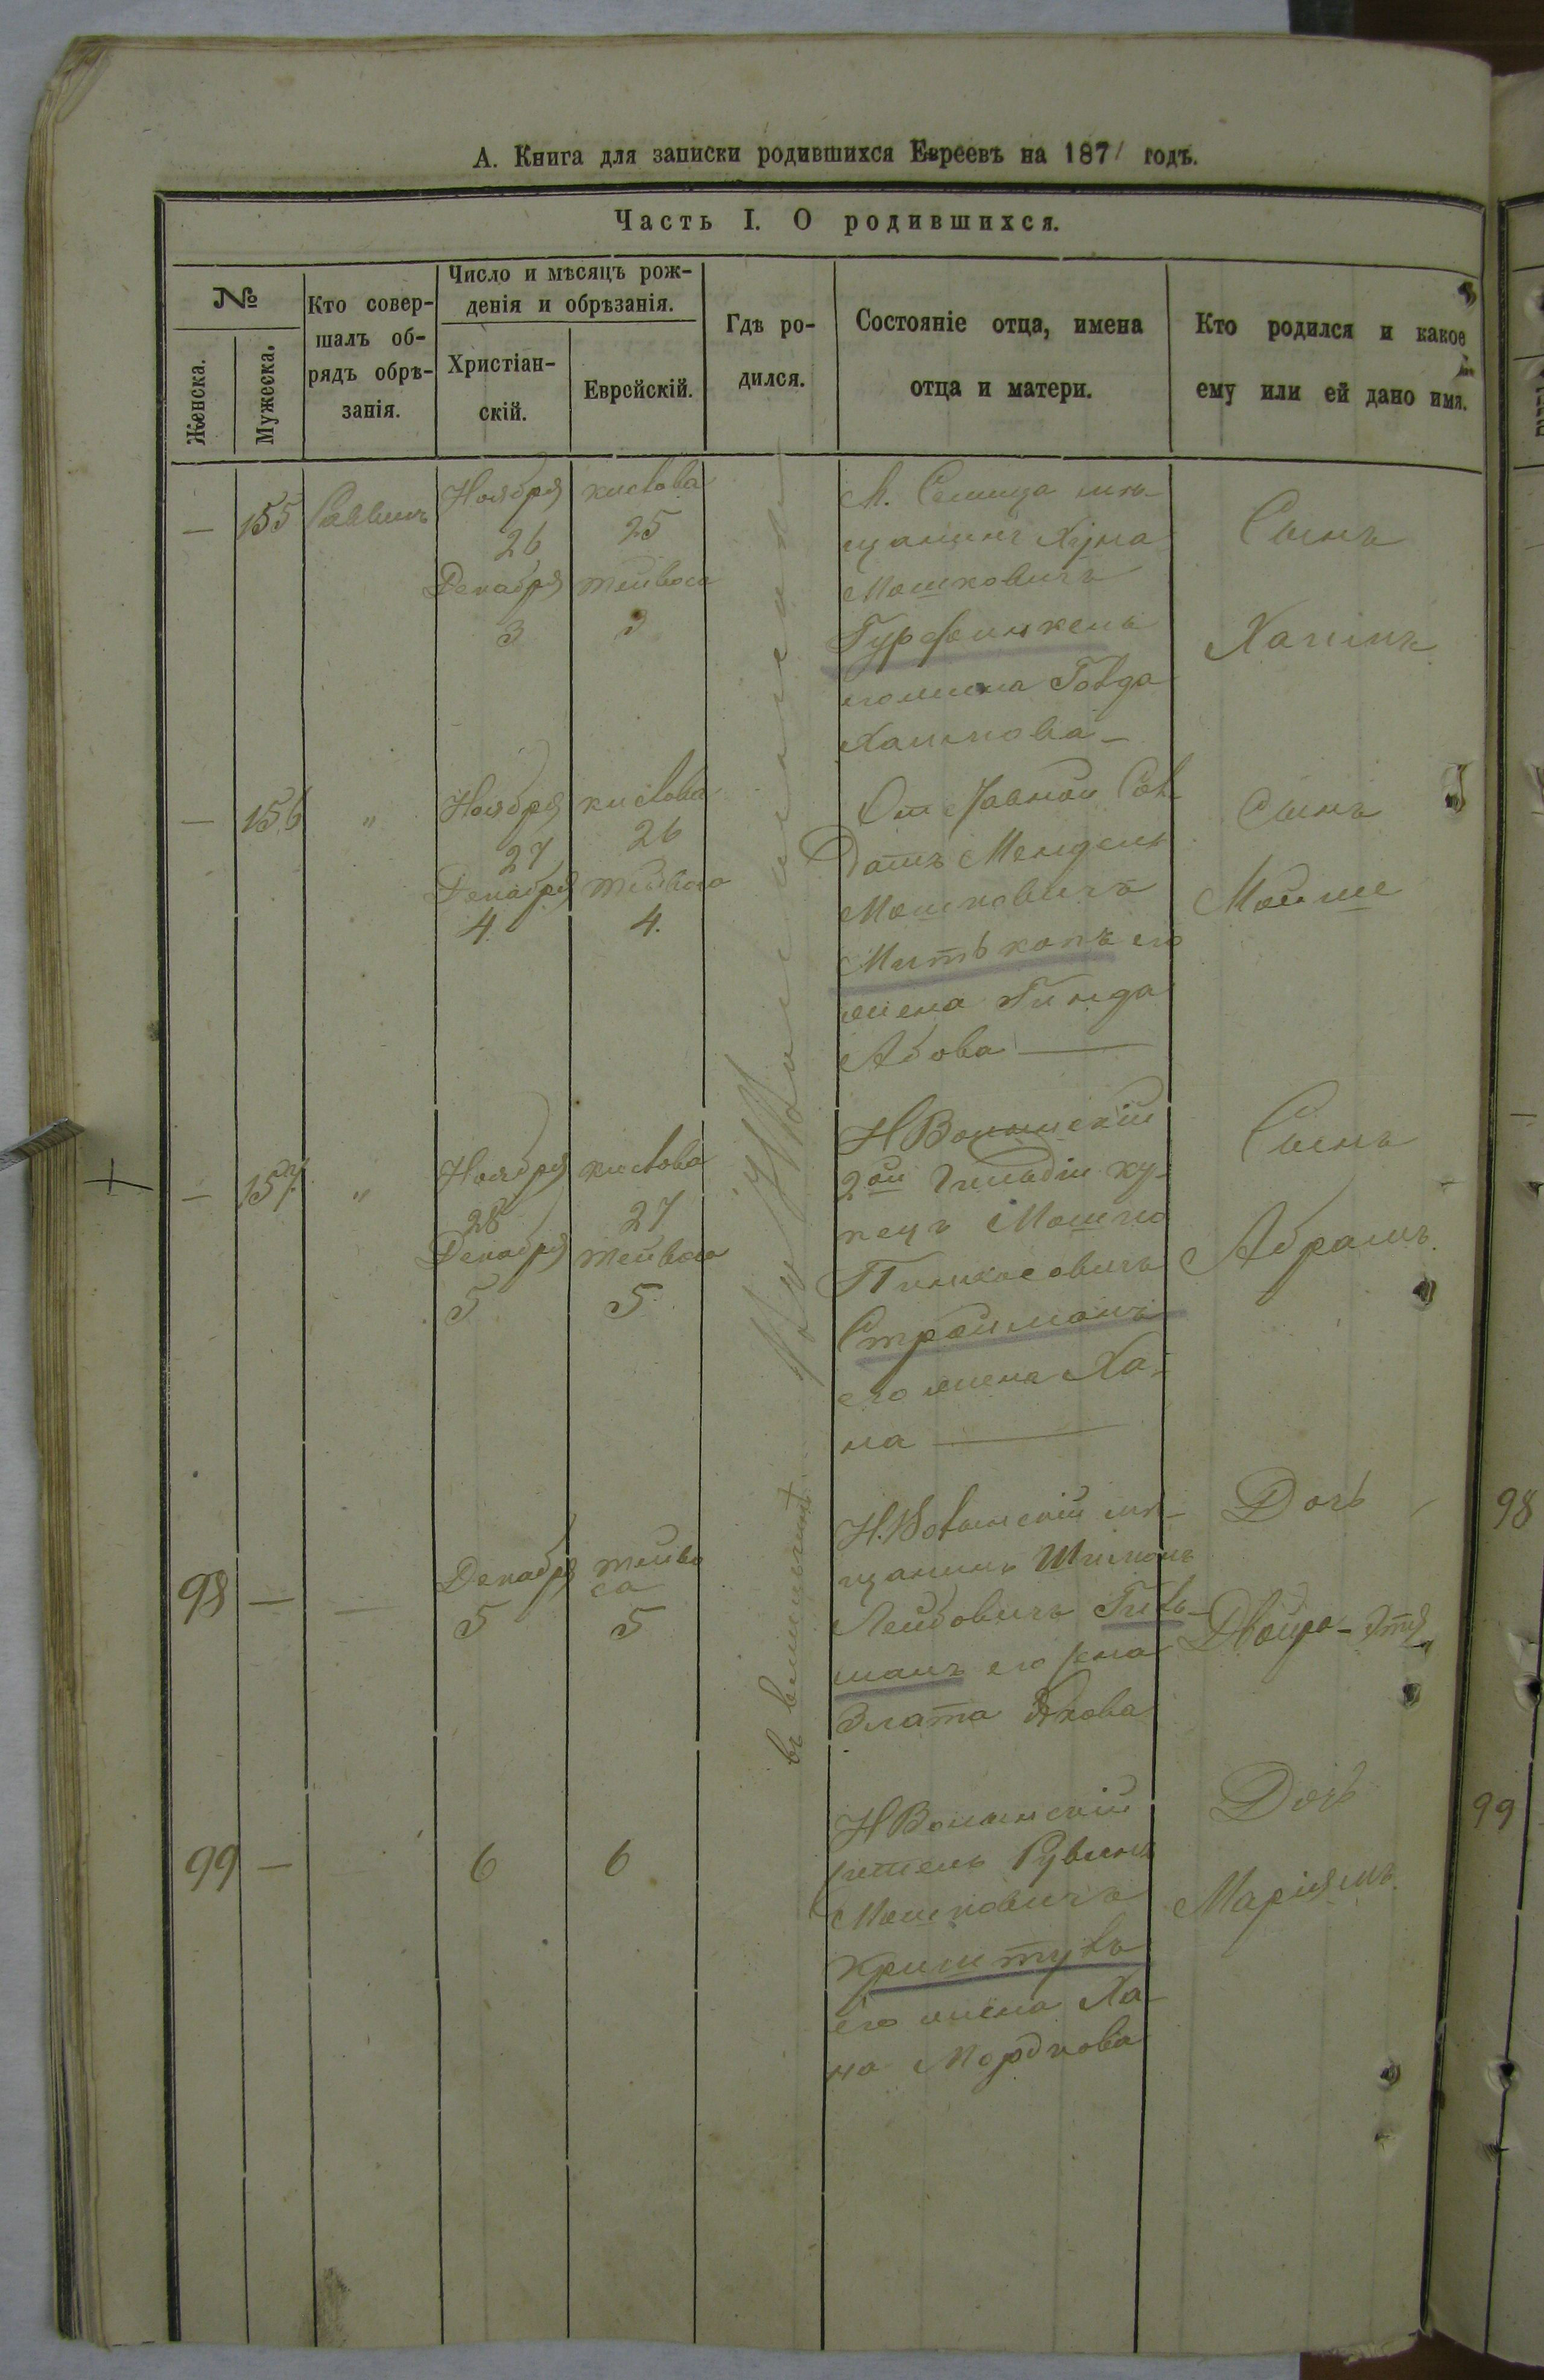 А. Книга для записки родившихся Евреевъ на 1871 годъ.
Часть I. О родившихся.
№
Женска.
Мужеска.
Кто совер-
шалъ об-
рядъ обрѣ-
занія.
Число и мѣсяцъ рож-
денія и обрѣзанія.
Христіан-
скій.
Еврейскій.
Гдѣ ро-
дился.
Состояніе отца, имена
отца и матери.
Кто родился и какое
ему или ей дано имя.
— 155 Раввинъ
Ноября
26
Декабря
3
кислова
25
тейвоса
3
М. мѣ-
щанинъ Хуна
Мошковичъ
Гурфинкель
его жена Голда
Хаимова —
Сынъ
Хаимъ
— 156 "
Ноября
27
Декабря
4.
кислова
26
тейвоса
4.
Сол-
датъ Мендель
Мошковичъ
его
жена Гинда
Абова —
Сынъ
Мойше
— 157 "
Ноября
28
Декабря
5
кислова
27
тейвоса
5
НВолынскій
2ой Гильдіи ку-
пецъ Мошко
Пинкасовичъ
Стройманъ
его жена Ха-
на —
Сынъ
Абрамъ
въ
98 — —
Декабря
5
тейво
са
5
Н.Волынскій мѣ-
щанинъ Шимонъ
Лейбовичъ Гиль-
манъ его жена
Злата Якова
Дочь
Двойра-Этя
99 —
6
6
НВолынскій
житель Рувинъ
Мошковичъ
его жена Ха-
на Мордкова
Дочь
Маріямъ
98
99